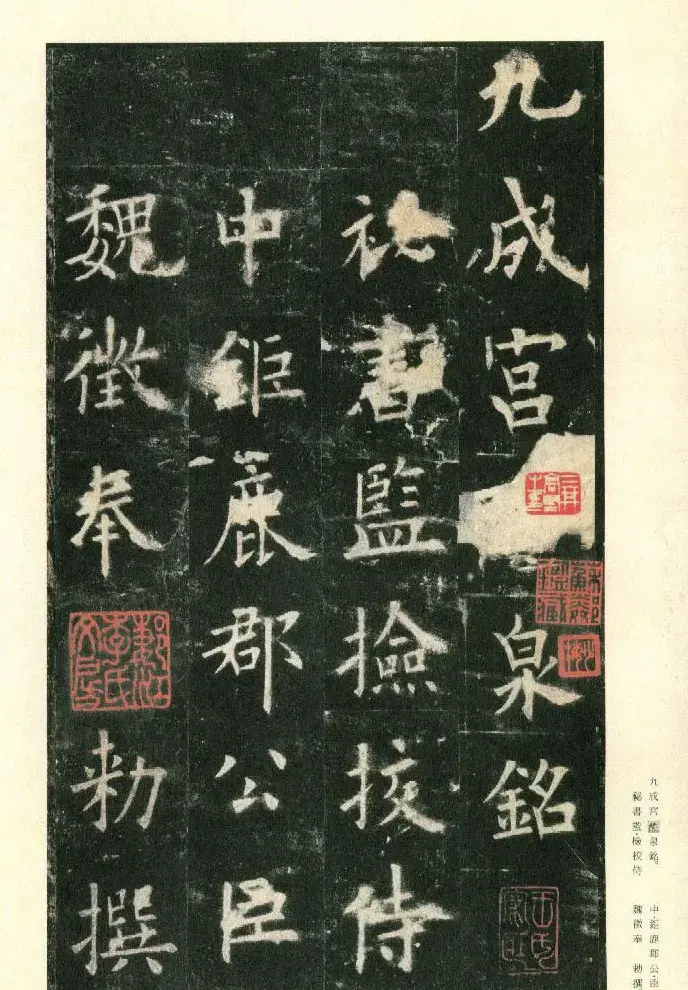 九成宮泉銘
祕書監撿挍侍
中鉅鹿郡公臣
魏徵奉勅撰
九成宮醴泉銘。
秘書監·檢校侍
中·鉅鹿郡公·臣
魏徵奉 勅撰